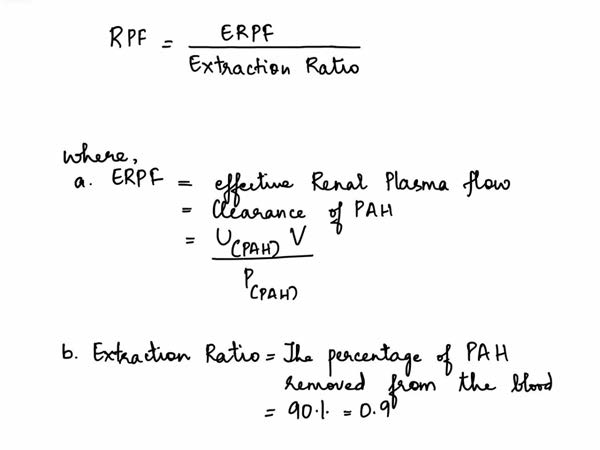 RPF = ERPF
Extraction Ratio
where,
a. ERPF = effective Renal Plasma flow
= Clearance of PAH
= U(PAH) V
P(PAH)
b. Extraction Ratio = The percentage of PAH
removed from the blood
= 90% = 0.9